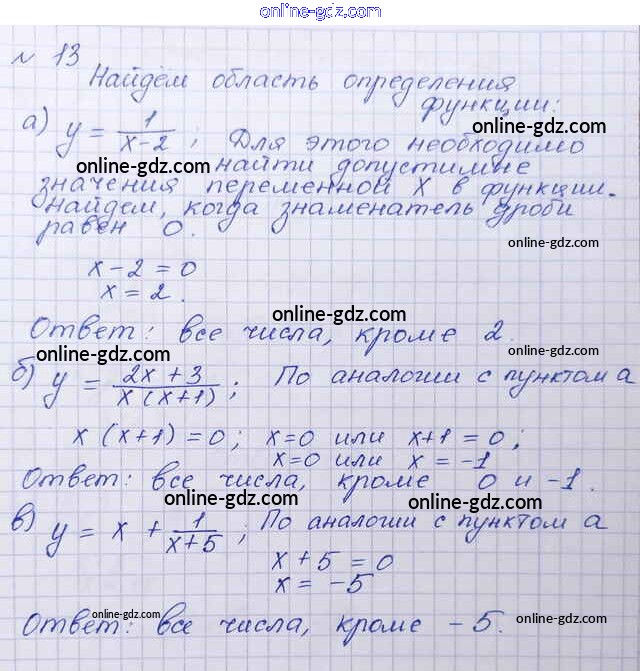 online-gdz.com
№ 13
Найдём область определения
функции:
а) y = 1/(x-2) ; Для этого необходимо
online-gdz.com найти допустимые online-gdz.com
значения переменной x в функции.
Найдем, когда знаменатель дроби
равен 0.
online-gdz.com
x - 2 = 0
x = 2.
online-gdz.com
Ответ: все числа, кроме 2.
online-gdz.com online-gdz.com
б) y = (2x + 3)/(x(x+1)) ; По аналогии с пунктом а
x (x+1) = 0; x=0 или x+1 = 0;
x=0 или x = -1
Ответ: все числа, кроме 0 и -1.
online-gdz.com online-gdz.com
в) y = x + 1/(x+5) ; По аналогии с пунктом а
online-gdz.com
x + 5 = 0
x = -5
online-gdz.com online-gdz.com
Ответ: все числа, кроме -5.